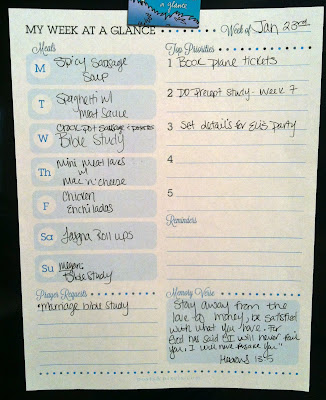 a glance
MY WEEK AT A GLANCE
Week of Jan 23rd
Meals
M Spicy Sausage
Soup
T Spaghetti w/
meat sauce
W Crock pot Sausage & potatoes
Bible Study
Th Mini meat loaves
w/
Mac n' cheese
F Chicken
Enchiladas
Sa Lasagna Roll ups
Su
Bible Study
Prayer Requests
Marriage bible study
Top Priorities
1 Book plane tickets
2 DO Precept Study - Week 7
3 Set details for Eli's party
4
5
Reminders
Memory Verse
"Stay away from the
love of money; be satisfied
with what you have. For
God has said "I will never fail
you, I will never forsake you"
Hebrews 13:5